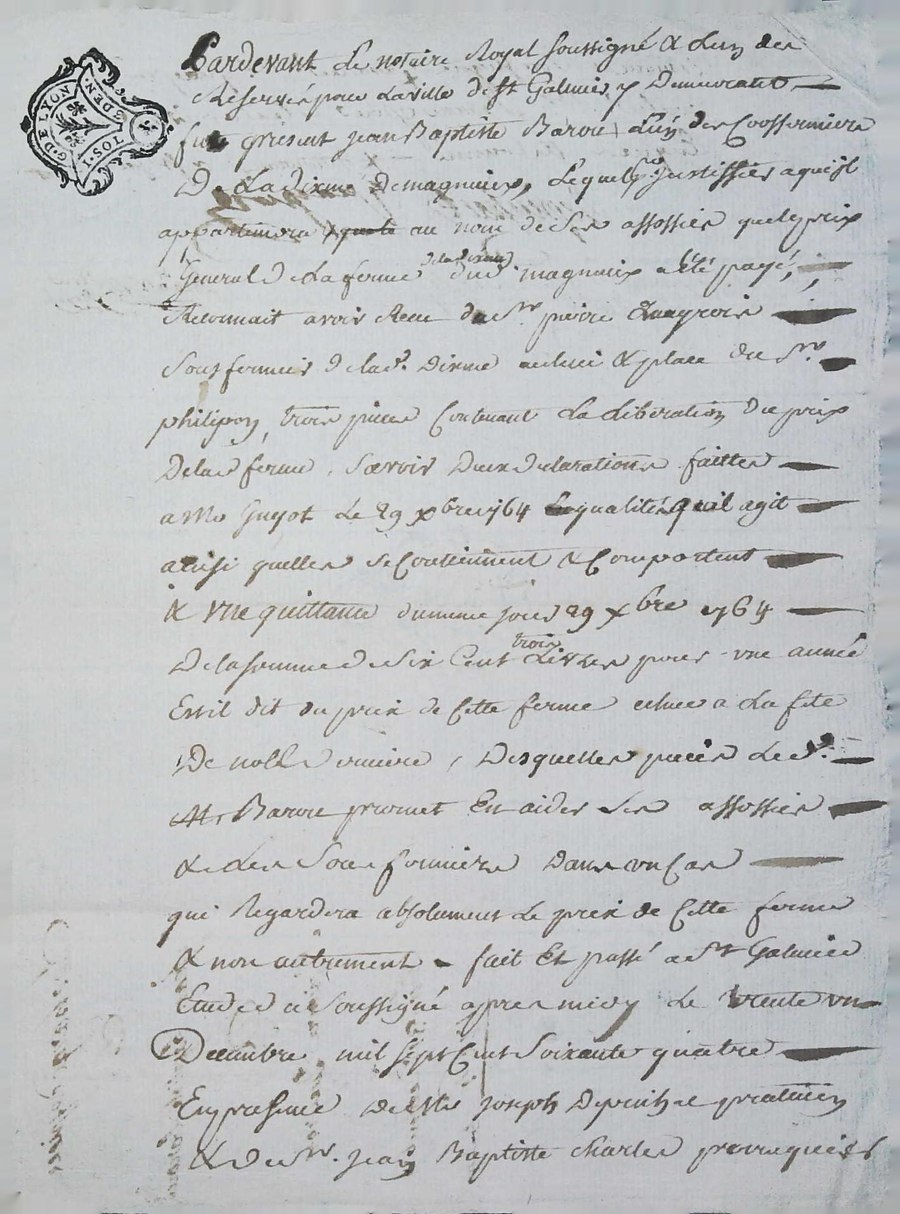 G. DE LYON
SOL. I. DEN.
Pardevant Le notaire Royal soussigné & L'un des
Reservés pour La ville de St Galmier y Demeurant
fut present Jean Baptiste Barore L'un des Coofermiers
De La dixme De magnieux, Lequel pr justiffier a qu'jl
appartiendra au nom de Ses assossiés que le prix
General de La ferme de la dixme dud magnieux a été payé,
Reconnait avoir Receu du Sr pierre
Sousfermier de lad. Dixme au lieu & place du Sr
philipon, trois pieces Contenant La Liberation du prix
De lad ferme. Sçavoir Deux declarations faittes
a Me Guyot Le 29 xbre 1764 qualités qu'il agit
ainsi quelles se Contiennent & Comportent
& Une quittance du meme jour 29 xbre 1764
De la somme de Six Cent trois Livres pour une année
Est il dit du prix de Cette ferme echue a La fete
De noël derniere, Desquelles pieces Le d.
Barore promet En aider Ses assossiés
& Les Sous fermiers Dans un Cas
qui Regardera absolument Le prix de Cette ferme
& non autrement fait Et passé a St Galmier
Etude du soussigné apres midy Le trente un
Decembre mil sept Cent Soixante quatre
En presence de Me Joseph praticien
& de Sr Jean Baptiste Charles perruquier